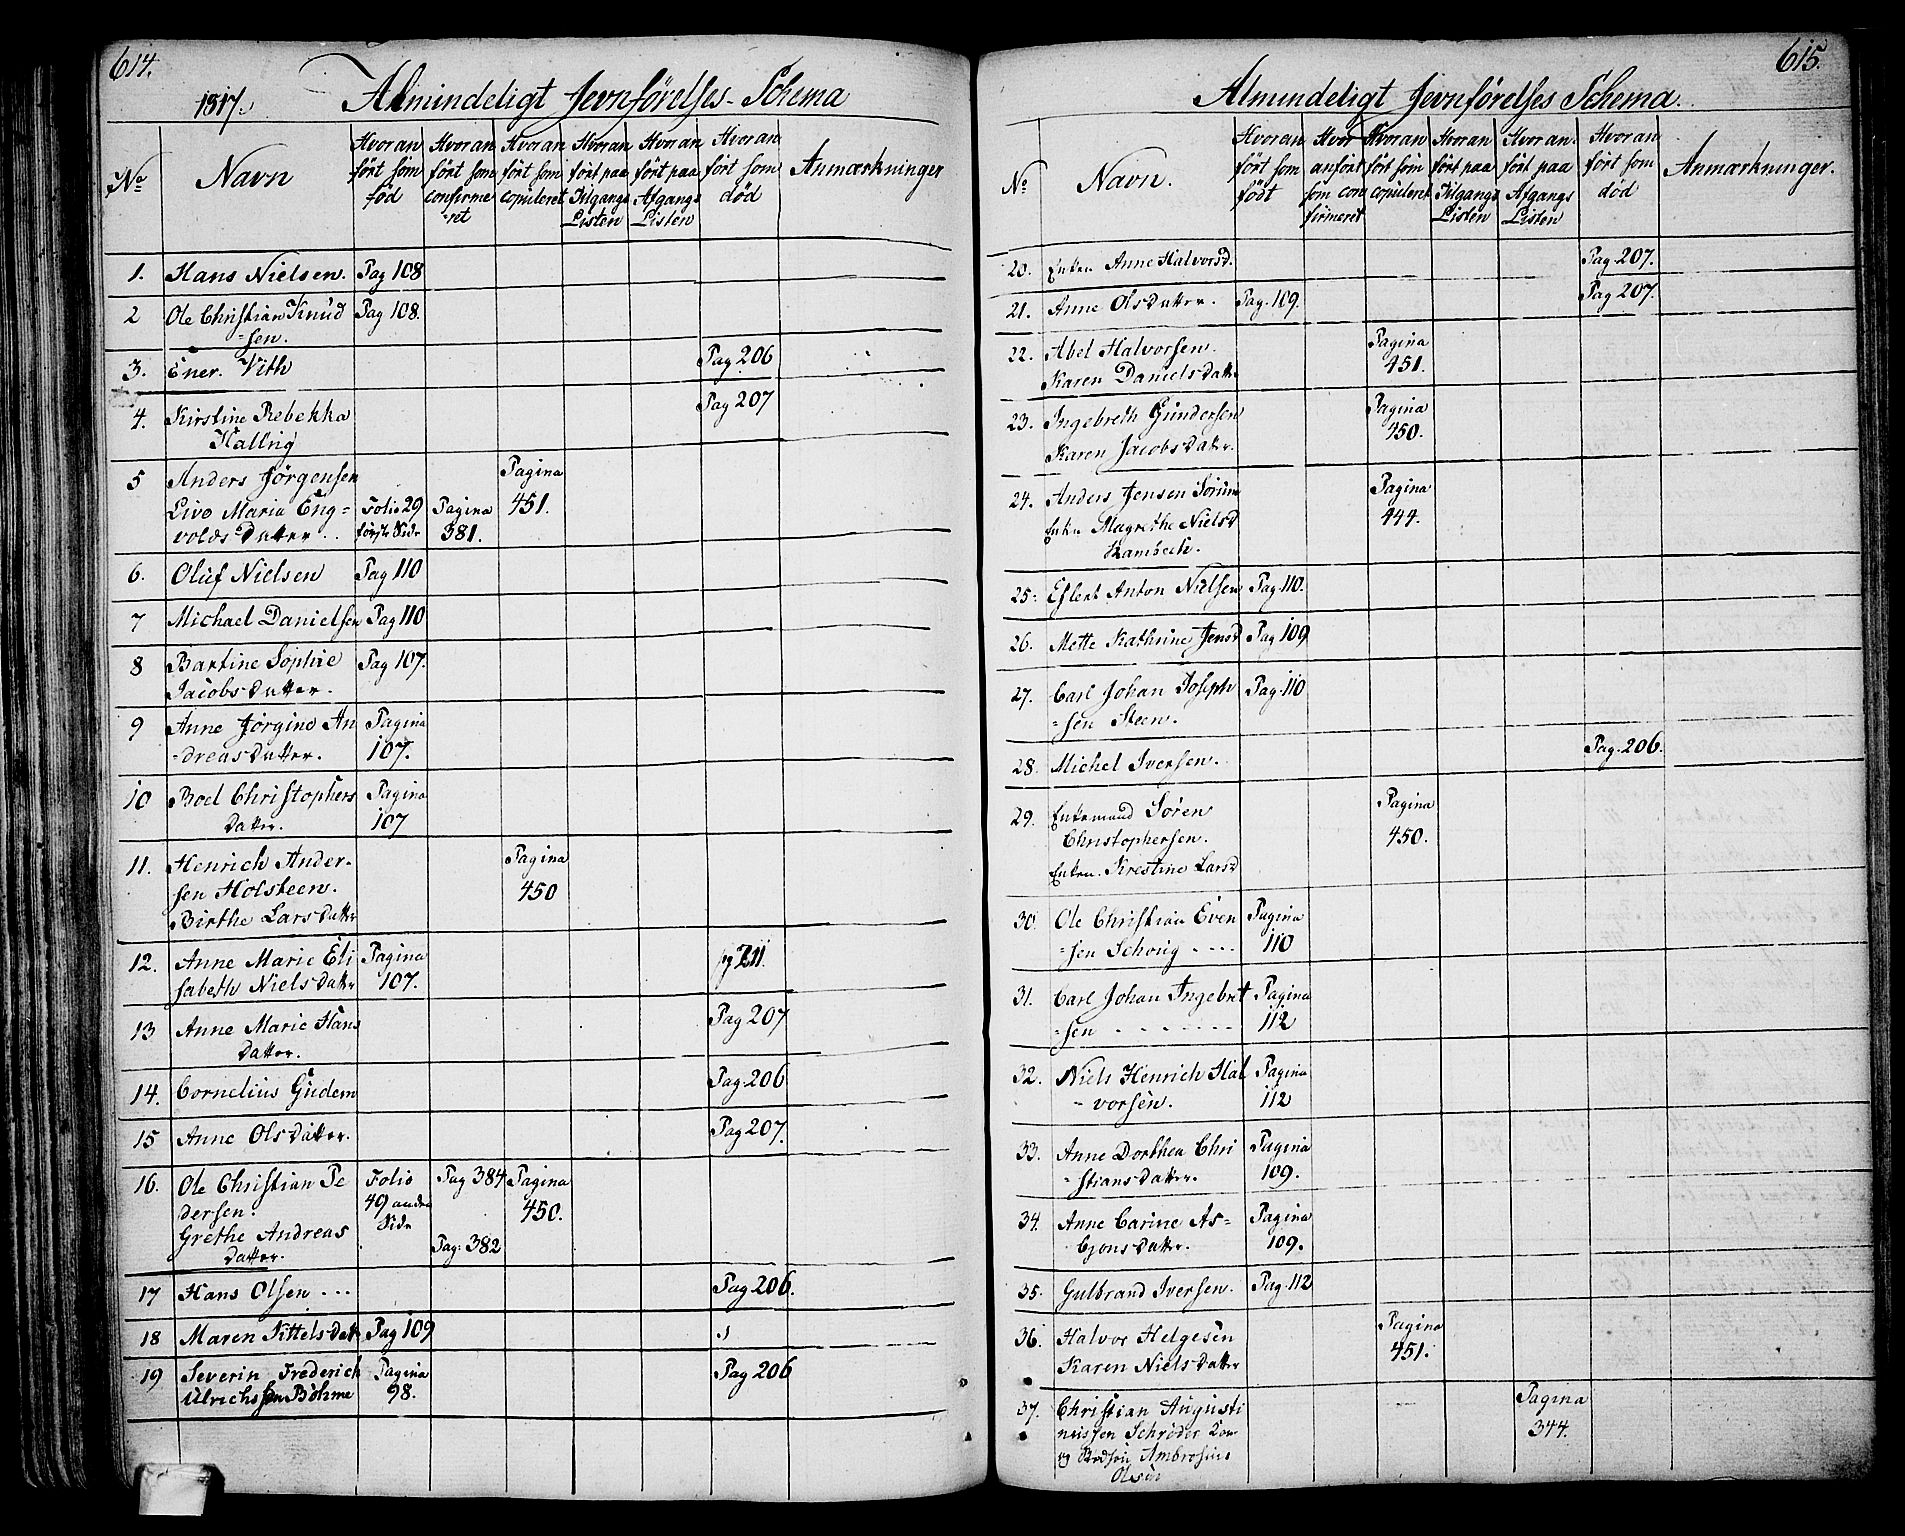 614.
1817. Almindeligt Jevnførelses-Schema
No
Navn
Hvoran
ført som
fød
Hvoran
ført som
confirme
-ret
Hvoran
ført som
copuleret
Hvoran
ført paa
Tilgangs
Listen
Hvoran
ført paa
Afgangs
Listen
Hvoran
ført som
død
Anmærkninger
1. Hans Nielsen. Pag 108
2 Ole Christian Knud Pag 108.
-sen.
3. Ener. Vith Pag 206
4. Kirstine Rebekka Pag 207
Halling
5 Anders Jørgensen Pagina
Live Maria Eng= Folio 29 Pagina 451.
volds Datter .. første Side 381.
6. Oluf Nielsen Pag 110
7 Michael Danielsen Pag 110
8 Bartine Sophie Pag 107.
Jacobs Datter.
9 Anne Jørgine An Pagina
-dreas Datter. 107.
10 Boel Christophers Pagina
Datter. 107
11. Henrich Ander- Pagina
sen Holsteen. 450
Birthe Lars Datter
12. Anne Marie Eli Pagina pg 211.
sabeth Niels Datter 107.
13 Anne Marie Hans Pag 207
Datter.
14. Cornelius Gudem Pag. 206
15 Anne Ols Datter. Pag 207.
16. Ole Christian Pe Folio Pag 384 Pagina
dersen. 49 anden 450.
Grethe Andreas Side Pag: 382
Datter.
17 Hans Olsen ... Pag 206.
18 Maren Kittels Datt Pag 109
19 Severin Frederich Pagina Pag 206
Ulrichssen Böhme 98.
615.
Almindeligt Jevnførelses Schema.
No
Navn.
Hvoran
ført som
født
Hvor
anført
som con
firmeret
Hvoran
ført som
copuleret
Hvoran
ført paa
Tilgangs
Listen
Hvoran.
ført paa
Afgangs
Listen
Hvoran
ført som
død
Anmærkninger.
20. Enken Anne Halvorsd. Pag 207.
21. Anne Ols Datter. Pag. 109. Pag 207.
22. Abel Halvorsen. Pagina
Karen Daniels Datter 451.
23. Ingebreth Gundersen Pagina
Karen Jacobs Datter. 450.
24. Anders Jensen Sørum Pagina
Enken Magrethe Nielsd 444.
Rambech.
25. Eflert Anton Nielsen Pag. 110.
26. Mette Kathrine Jensd Pag 109
27. Carl Johan Joseph Pag. 110
-sen Steen.
28. Michel Iversen. Pag. 206.
29. Enkemand Søren Pagina
Christophersen. 450.
Enken. Kirestine Larsd
30. Ole Christian Even Pagina
-sen Schoug .... 110
31. Carl Johan Ingebret Pagina
-sen ....... 112
32. Niels Henrich Hal Pagina
-vorsen. 112
33. Anne Dorthea Chri Pagina
-stians datter. 109.
34. Anne Carine As= Pagina
bjons Datter. 109.
35. Gulbrand Iversen. Pag. 112
36. Halvor Helgesen Pagina
Karen Niels Datter 451.
37. Christian Augusti Pagina
nussen Schrøder Kone 344.
og Stedsøn Ambrosius
Olsen